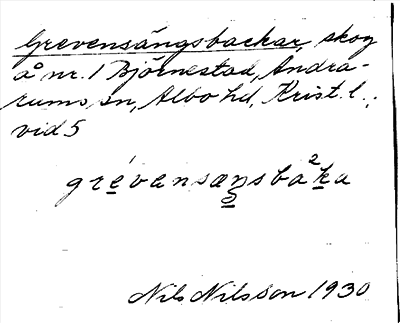 Grevensängsbackar, skog
å nr. 1 Björnestad, Andra-
rums sn, Albo hd, Krist. l.;
vid 5
grévensæŋsba²ka
Nils Nilsson 1930